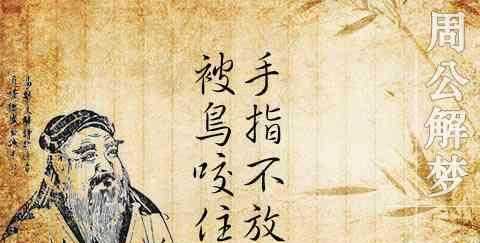 周公解梦
手指不放
被鳥咬住